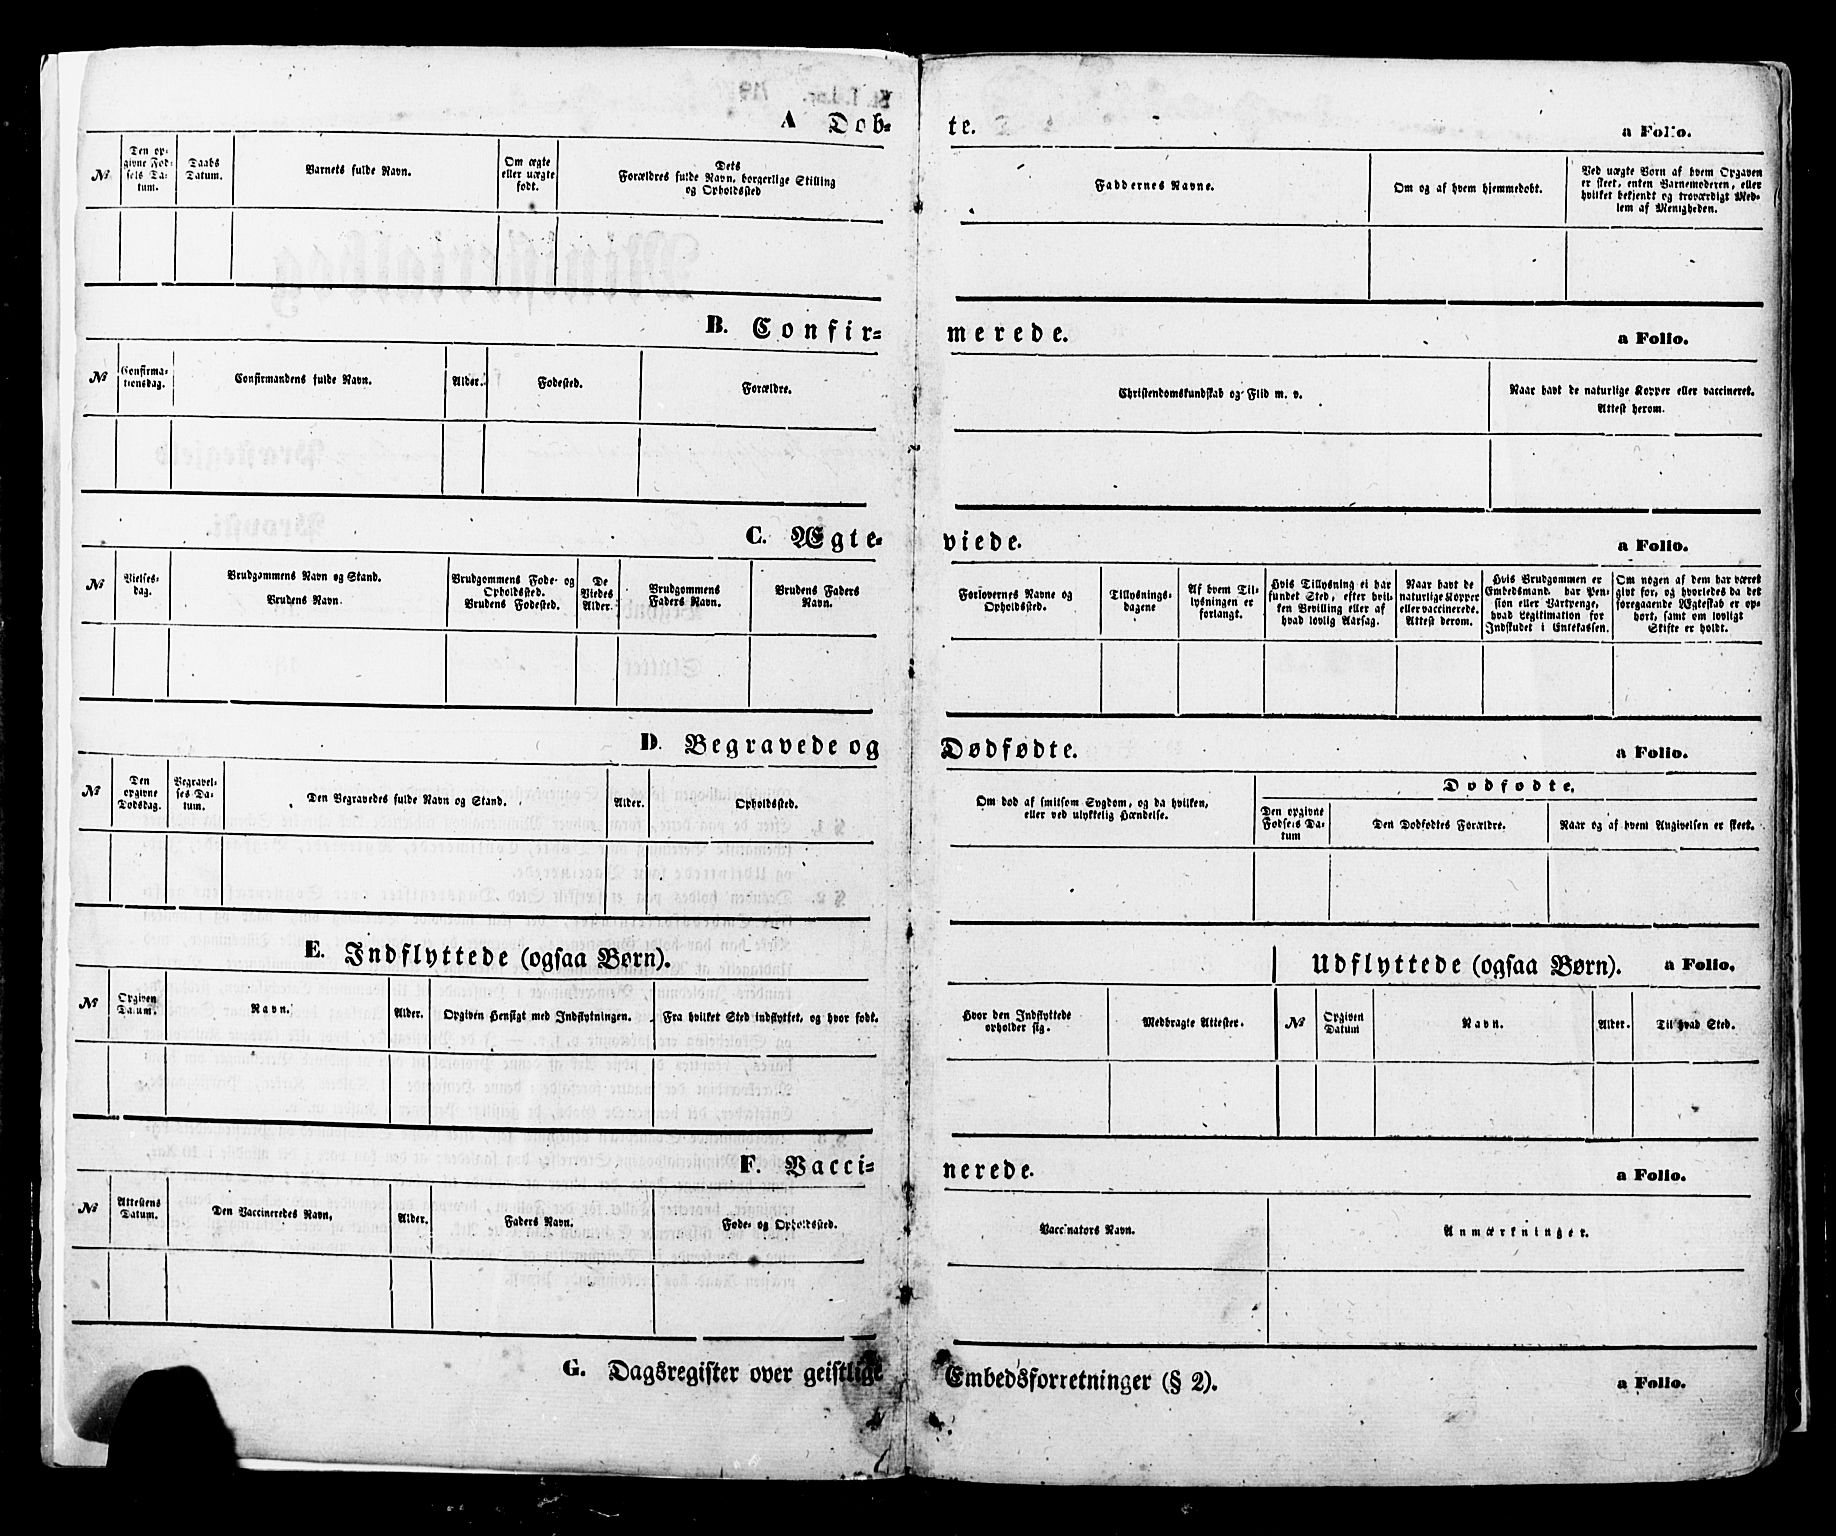 A Døb-
te.
a Folio.
№
Den op-
givne Fød-
sels Da-
tum.
Daabs
Datum.
Barnets fulde Navn.
Om ægte
eller uægte
født.
Dets
Forældres fulde Navn, borgerlige Stilling
og Opholdssted
Faddernes Navne.
Om og af hvem hjemmedøbt.
Ved uægte Børn af hvem Opgaven
er skeet, enten Barnemoderen, eller
hvilket bekjendt og troværdigt Med-
lem af Menigheden.
B. Confir-
merede.
a Folio.
№
Confirma-
tionsdag.
Confirmandens fulde Navn.
Alder.
Fødested.
Forældre.
Christendomskundskab og Flid m. v.
Naar havt de naturlige Kopper eller vaccineret.
Attest herom.
C. Ægte-
viede.
a Folio.
№
Vielses-
dag.
Brudgommens Navn og Stand.
Brudens Navn.
Brudgommens Føde- og
Opholdssted.
Brudens Fødested.
De
Viedes
Alder.
Brudgommens
Faders Navn.
Brudens Faders
Navn.
Forlovernes Navne og
Opholdssted.
Tillysnings-
dagene
Af hvem Til-
lysningen er
forlangt.
Hvis Tillysning ei har
fundet Sted, efter hvil-
ken Bevilling eller af
hvad lovlig Aarsag.
Naar havt de
naturlige Kopper
eller vaccinerede.
Attest derom.
Hvis Brudgommen er
Embedsmand, har Pen-
sion eller Vartpenge,
hvad Legitimation for
Indskudet i Enkekassen.
Om nogen af dem har været
givt før, og hvorledes da det
foregaaende Ægteskab er op-
hørt, samt om lovligt
Skifte er holdt.
D. Begravede og
Dødfødte.
a Folio.
№
Den
opgivne
Dødsdag.
Begravel-
ses Da-
tum.
Den Begravedes fulde Navn og Stand.
Alder.
Opholdssted.
Om død af smitsom Sygdom, og da hvilken,
eller ved ulykkelig Hændelse.
Dødfødte.
Den opgivne
Fødsels Da-
tum
Den Dødfødtes Forældre.
Naar og af hvem Angivelsen er skeet.
E. Indflyttede (ogsaa Børn).
Udflyttede (ogsaa Børn).
a Folio.
№
Opgiven
Datum.
Navn.
Alder.
Opgiven Hensigt med Indflytningen.
Fra hvilket Sted indflyttet, og hvor født.
Hvor den Indflyttede
opholder sig.
Medbragte Attester.
№
Opgiven
Datum
Navn.
Alder.
Til hvad Sted.
F. Vacci-
nerede.
a Folio.
№
Attestens
Datum.
Den Vaccineredes Navn,
Alder.
Faders Navn.
Føde- og Opholdssted.
Vaccinators Navn.
Anmærkninger.
G. Dagsregister over geistlige
Embedsforretninger (§ 2).
a Folio.